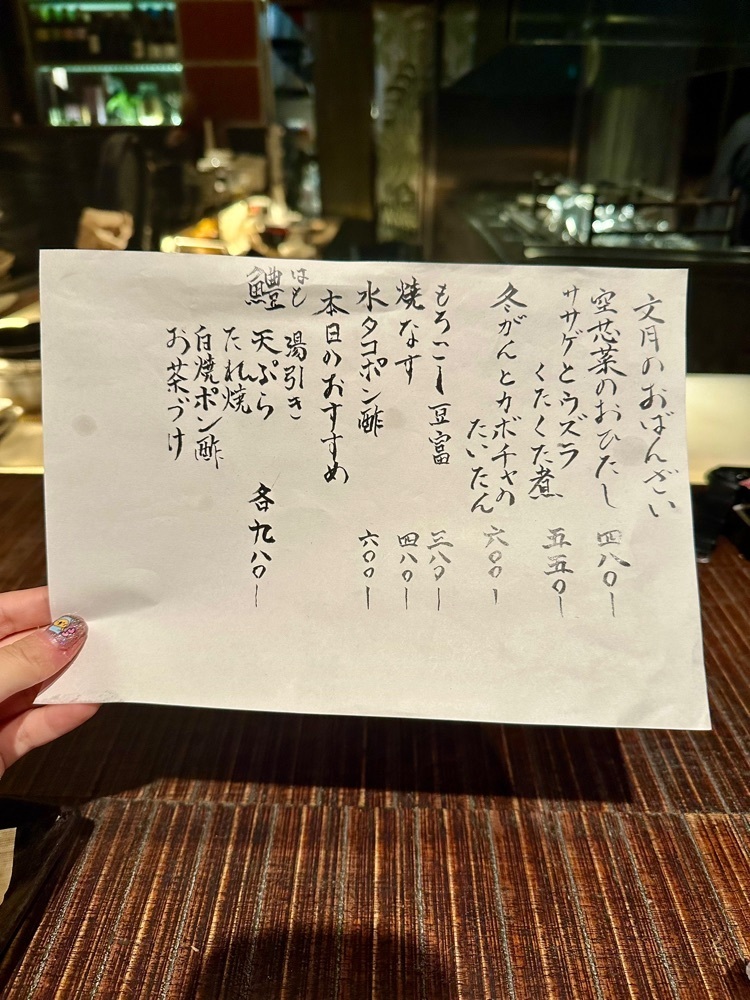 文月のおばんざい
空芯菜のおひたし 四八〇ー
ササゲとウズラ
くたくた煮 五五〇ー
冬がんとカボチャの
たいたん 六〇〇ー
もろこし豆富 三八〇ー
焼なす 四八〇ー
水タコポン酢 六〇〇ー
本日のおすすめ
はも
鱧 湯引き
天ぷら
たれ焼
白焼ポン酢
お茶づけ
各九八〇ー